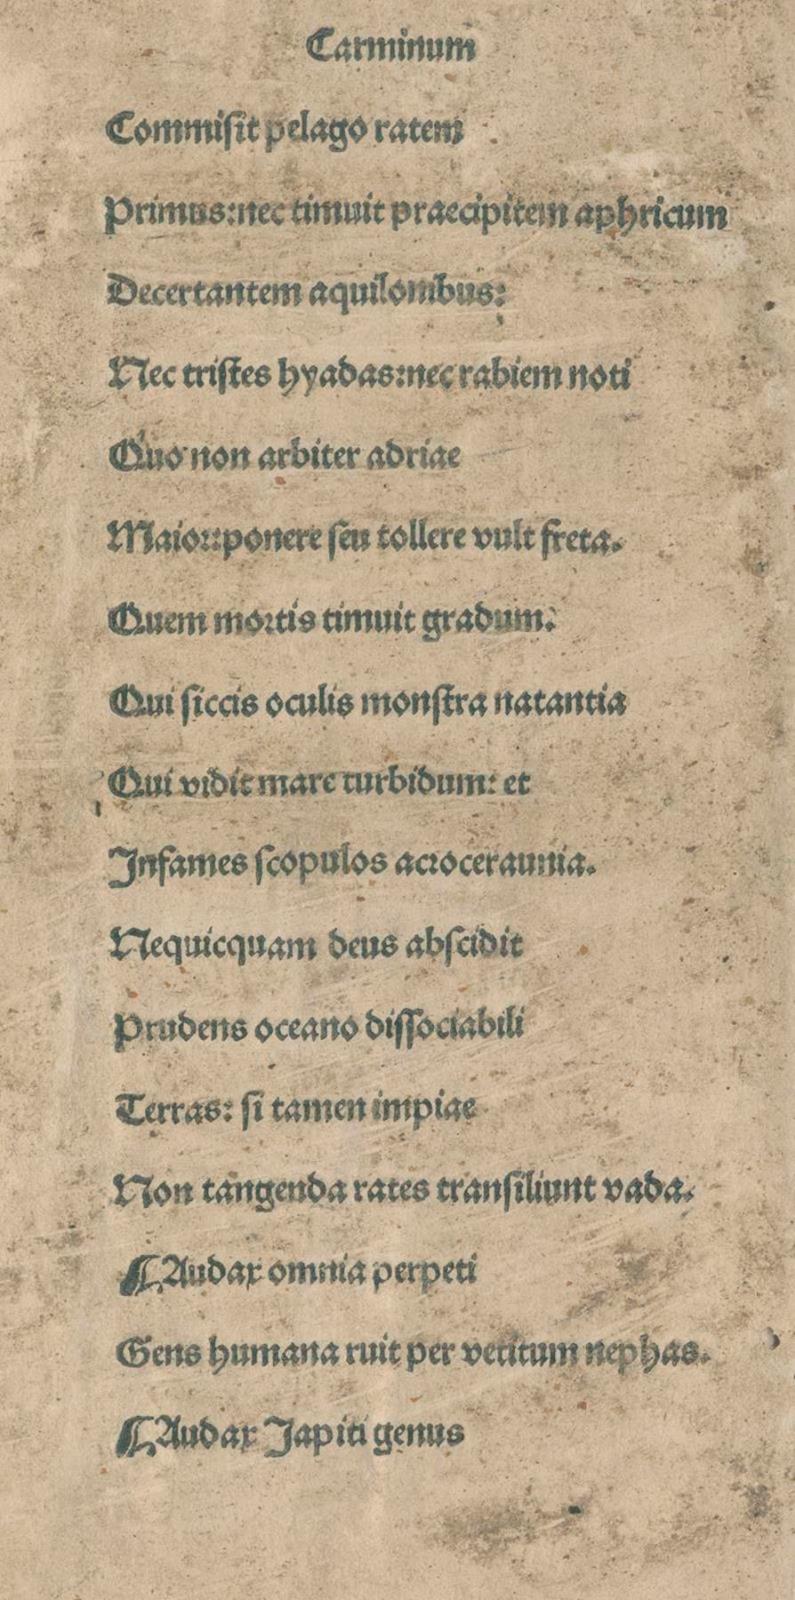 Carminum
Commiſit pelago ratem
Primus:nec timuit praecipitem aphricum
Decertantem aquilonibus:
Nec triſtes hyadas:nec rabiem noti
Quo non arbiter adriae
Maior:ponere ſeu tollere vult freta.
Quem mortis timuit gradum.
Qui ſiccis oculis monſtra natantia
Qui vidit mare turbidum: et
Infames ſcopulos acroceraunia.
Nequicquam deus abſcidit
Prudens oceano diſſociabili
Terras: ſi tamen impiae
Non tangenda rates tranſiliunt vada.
¶Audax omnia perpeti
Gens humana ruit per vetitum nephas.
¶Audax Japiti genus